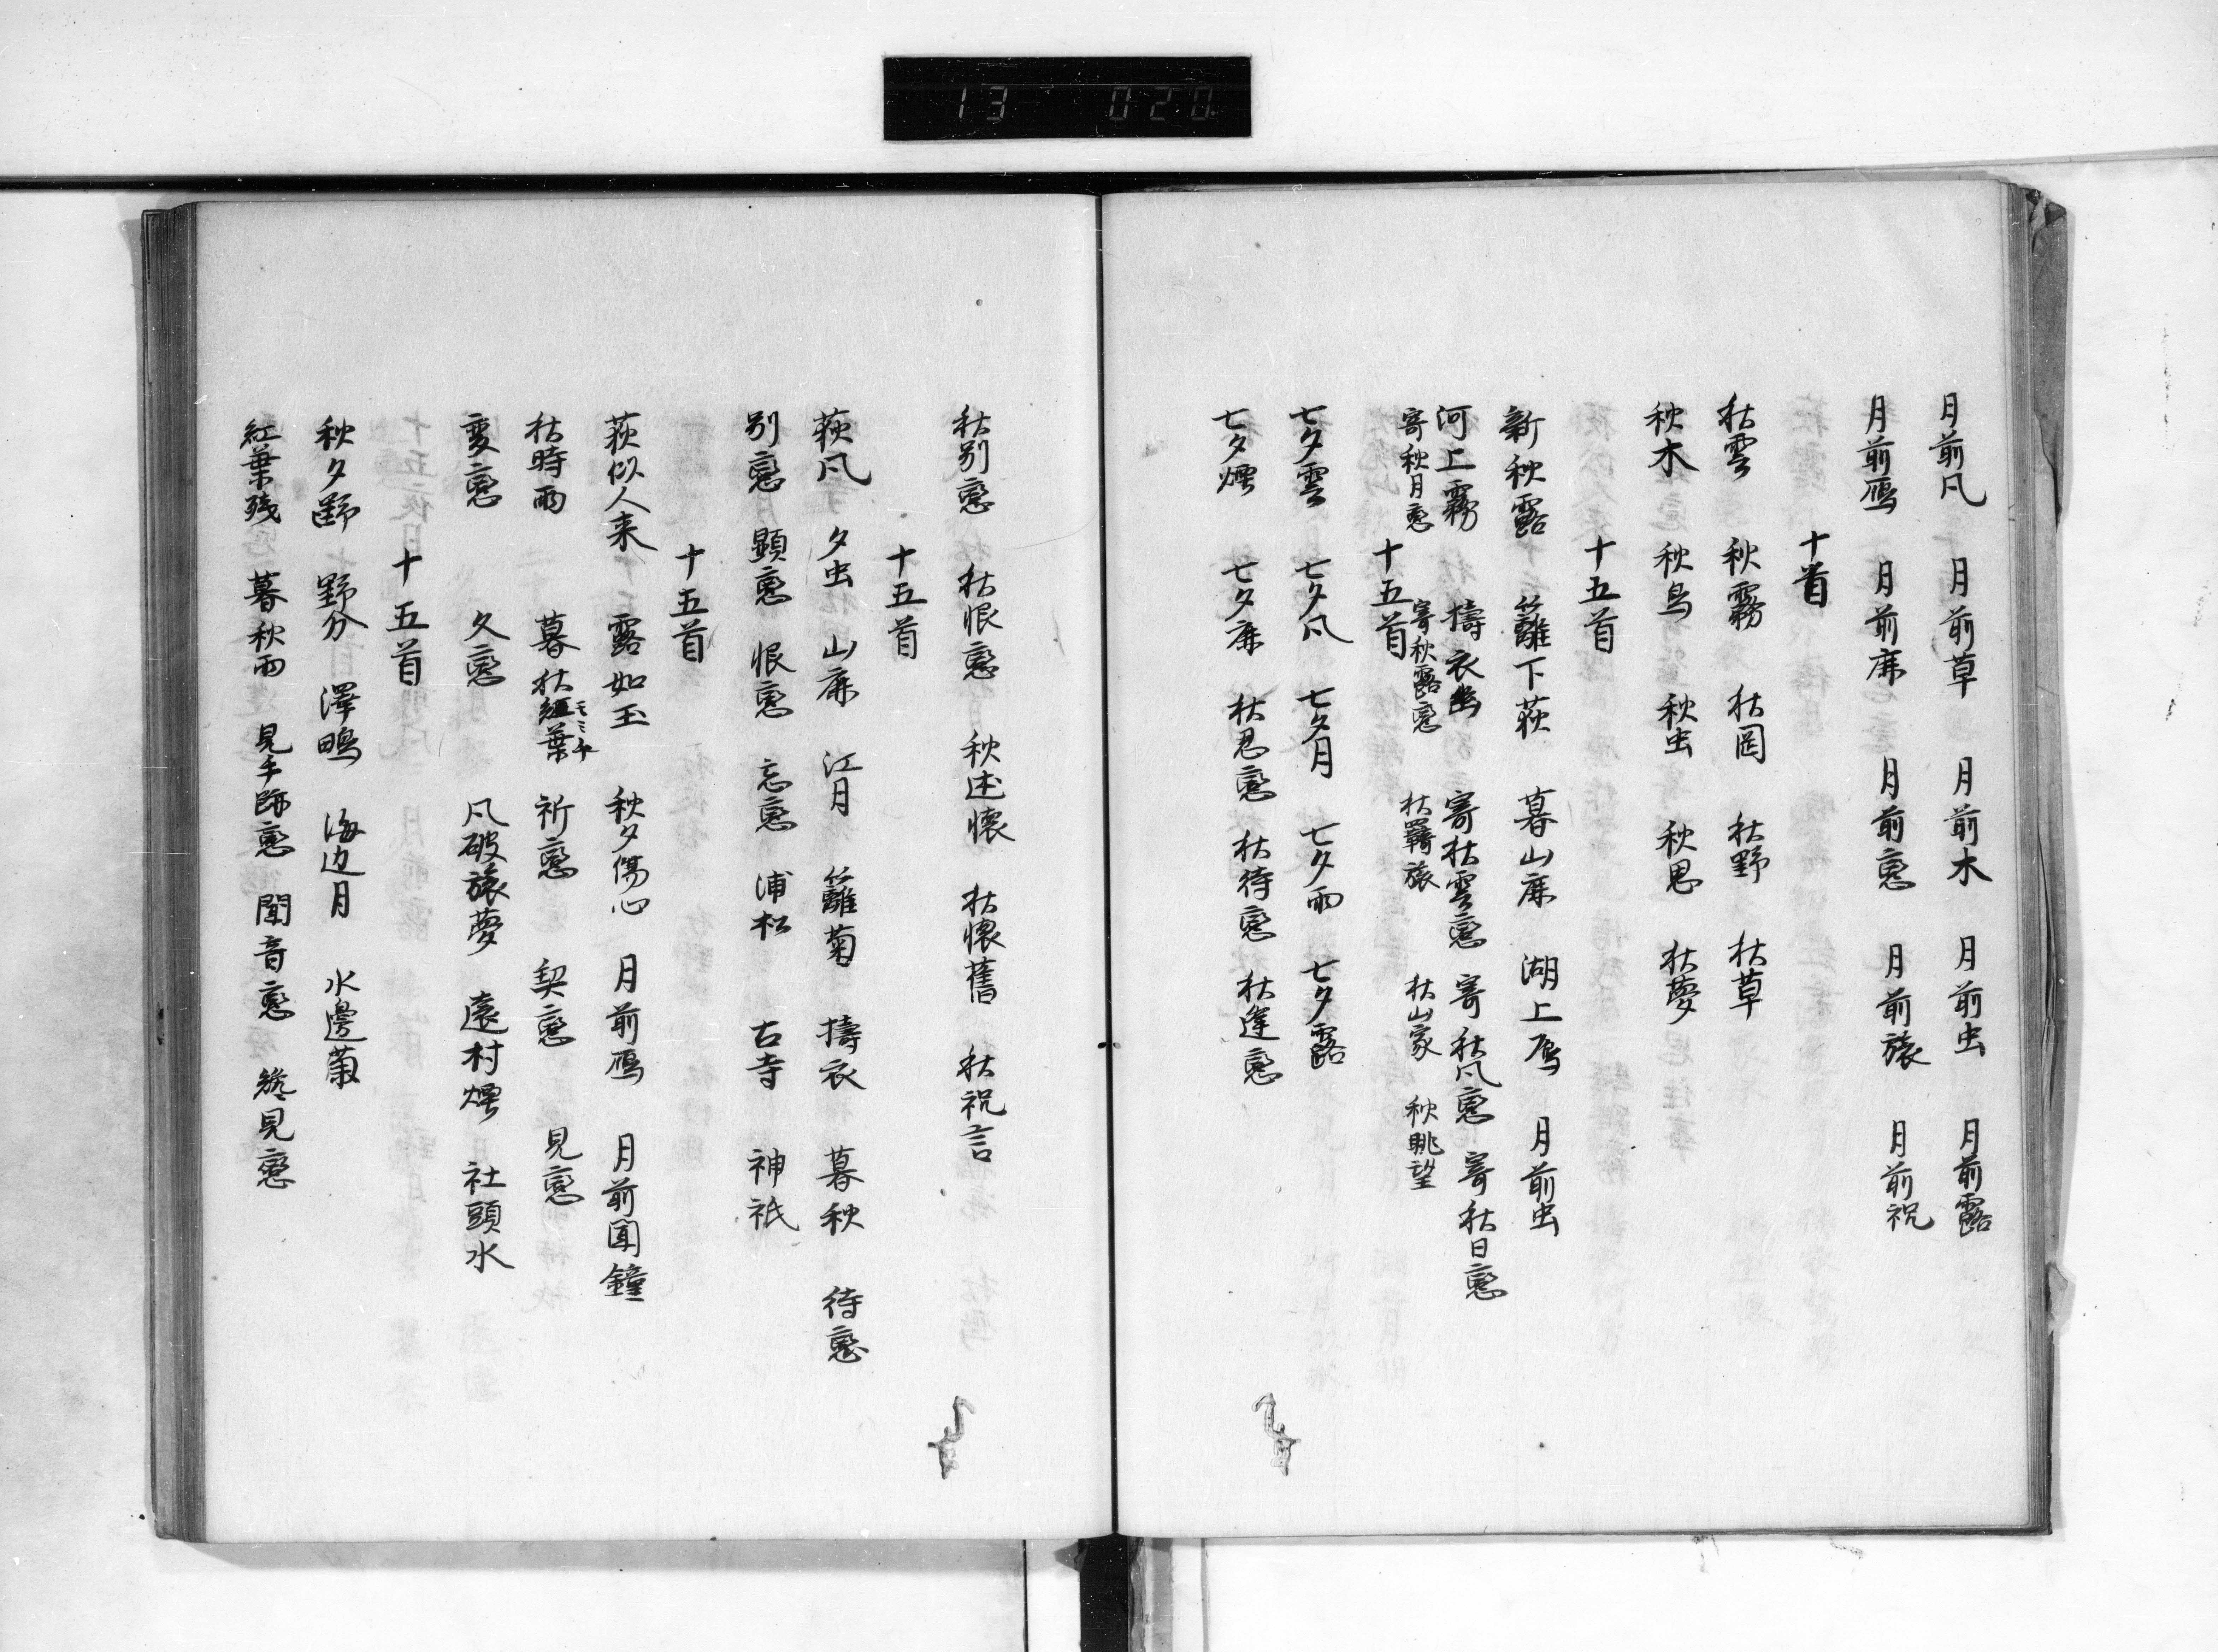 13 020
月前風 月前草 月前木 月前虫 月前露
月前鴈 月前鹿 月前戀 月前旅 月前祝
十首
秋雲 秋霧 秋岡 秋野 秋草
秋木 秋鳥 秋虫 秋思 秋夢
十五首
新秋露 籬下萩 暮山鹿 湖上鴈 月前虫
河上霧 擣衣幽 寄秋雲戀 寄秋風戀 寄秋日戀
寄秋月戀 寄秋露戀 秋羇旅 秋山家 秋眺望
十五首
七夕雲 七夕風 七夕月 七夕雨 七夕露
七夕煙 七夕鹿 秋忍戀 秋待戀 秋逢戀
秋別戀 秋恨戀 秋述懐 秋懐舊 秋祝言
十五首
萩風 夕虫 山鹿 江月 籬菊 擣衣 暮秋 待戀
別戀 顕戀 恨戀 忘戀 浦松 古寺 神祇
十五首
萩似人来 露如玉 秋夕傷心 月前鴈 月前聞鐘
秋時雨 暮秋紅葉 祈戀 契戀 見戀
変戀 久戀 風破旅夢 遠村煙 社頭水
十五首
秋夕野 野分 澤鴫 海辺月 水邊菊
紅葉残 暮秋雨 見手跡戀 聞音戀 纔見戀